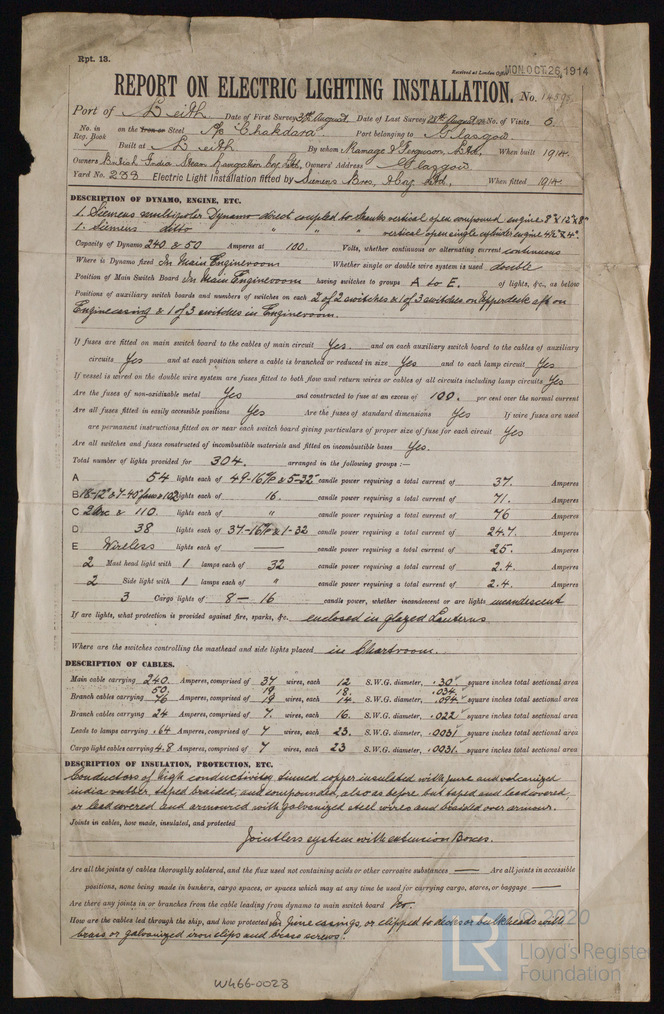 Rpt. 13.
Received at London Office MON. OCT. 26, 1914
REPORT ON ELECTRIC LIGHTING INSTALLATION. No.
Port of Leith Date of First Survey August Date of Last Survey August No. of Visits 6.
No. in Reg. Book on the Iron or Steel "Chakdara" Port belonging to Glasgow
Built at Leith By whom Ramage & Ferguson Ltd. When built 1914.
Owners British India Steam Navigation Coy Ltd. Owners' Address Glasgow
Yard No. 233 Electric Light Installation fitted by Siemens Bros, & Coy. Ltd. When fitted 1914.
DESCRIPTION OF DYNAMO, ENGINE, ETC.
1. Siemens multipolar Dynamo direct coupled to Shanks vertical open compound engine 8" x 12" x 8"
1. Siemens ditto " " " vertical open single cylinder engine 4½" x 4".
Capacity of Dynamo 240 & 50 Amperes at 100. Volts, whether continuous or alternating current continuous
Where is Dynamo fixed In Main Engineroom Whether single or double wire system is used double
Position of Main Switch Board In Main Engineroom having switches to groups A to E. of lights, &c., as below
Positions of auxiliary switch boards and numbers of switches on each 2 of 2 switches & 1 of 3 switches on Upperdeck aft on
Engine casing & 1 of 3 switches in Engineroom.
If fuses are fitted on main switch board to the cables of main circuit Yes. and on each auxiliary switch board to the cables of auxiliary
circuits Yes and at each position where a cable is branched or reduced in size Yes and to each lamp circuit Yes
If vessel is wired on the double wire system are fuses fitted to both flow and return wires or cables of all circuits including lamp circuits Yes
Are the fuses of non-oxidizable metal Yes and constructed to fuse at an excess of 100. per cent over the normal current
Are all fuses fitted in easily accessible positions Yes Are the fuses of standard dimensions Yes If wire fuses are used
are permanent instructions fitted on or near each switch board giving particulars of proper size of fuse for each circuit Yes
Are all switches and fuses constructed of incombustible materials and fitted on incombustible bases Yes.
Total number of lights provided for 304. arranged in the following groups :—
A 54 lights each of 49-16 & 5-32 candle power requiring a total current of 37. Amperes
B 18-12" & 7-40" fans & 102 lights each of 16. candle power requiring a total current of 71. Amperes
C 2 arc & 110. lights each of " candle power requiring a total current of 76 Amperes
D 38 lights each of 37-16 & 1-32 candle power requiring a total current of 24.7. Amperes
E Wireless lights each of — candle power requiring a total current of 25. Amperes
2 Mast head light with 1 lamps each of 32 candle power requiring a total current of 2.4. Amperes
2 Side light with 1 lamps each of " candle power requiring a total current of 2.4. Amperes
3 Cargo lights of 8 - 16 candle power, whether incandescent or arc lights incandescent
If arc lights, what protection is provided against fire, sparks, &c. enclosed in glazed Lanterns
Where are the switches controlling the masthead and side lights placed in Chartroom.
DESCRIPTION OF CABLES.
Main cable carrying 240 Amperes, comprised of 37 wires, each 12 S.W.G. diameter, .30 square inches total sectional area
50. 19 18. .034
Branch cables carrying 76 Amperes, comprised of 19 wires, each 14. S.W.G. diameter, .094 square inches total sectional area
Branch cables carrying 24 Amperes, comprised of 7. wires, each 16. S.W.G. diameter, .022 square inches total sectional area
Leads to lamps carrying .64 Amperes, comprised of 7 wires, each 23. S.W.G. diameter, .0031 square inches total sectional area
Cargo light cables carrying 4.8 Amperes, comprised of 7 wires, each 23 S.W.G. diameter, .0031. square inches total sectional area
DESCRIPTION OF INSULATION, PROTECTION, ETC.
Conductors of high conductivity, tinned copper insulated with pure and vulcanized
india rubber, taped braided, and compounded, also as before but taped and leadcovered,
or leadcovered and armoured with galvanized steel wires and braided over armour.
Joints in cables, how made, insulated, and protected
Jointless system with extension Boxes.
Are all the joints of cables thoroughly soldered, and the flux used not containing acids or other corrosive substances — Are all joints in accessible
positions, none being made in bunkers, cargo spaces, or spaces which may at any time be used for carrying cargo, stores, or baggage —
Are there any joints in or branches from the cable leading from dynamo to main switch board No.
How are the cables led through the ship, and how protected In pine casings, or clipped to decks or bulkheads with
brass or galvanized iron clips and brass screws.
W466-0028
LR © 2020
Lloyd's Register
Foundation